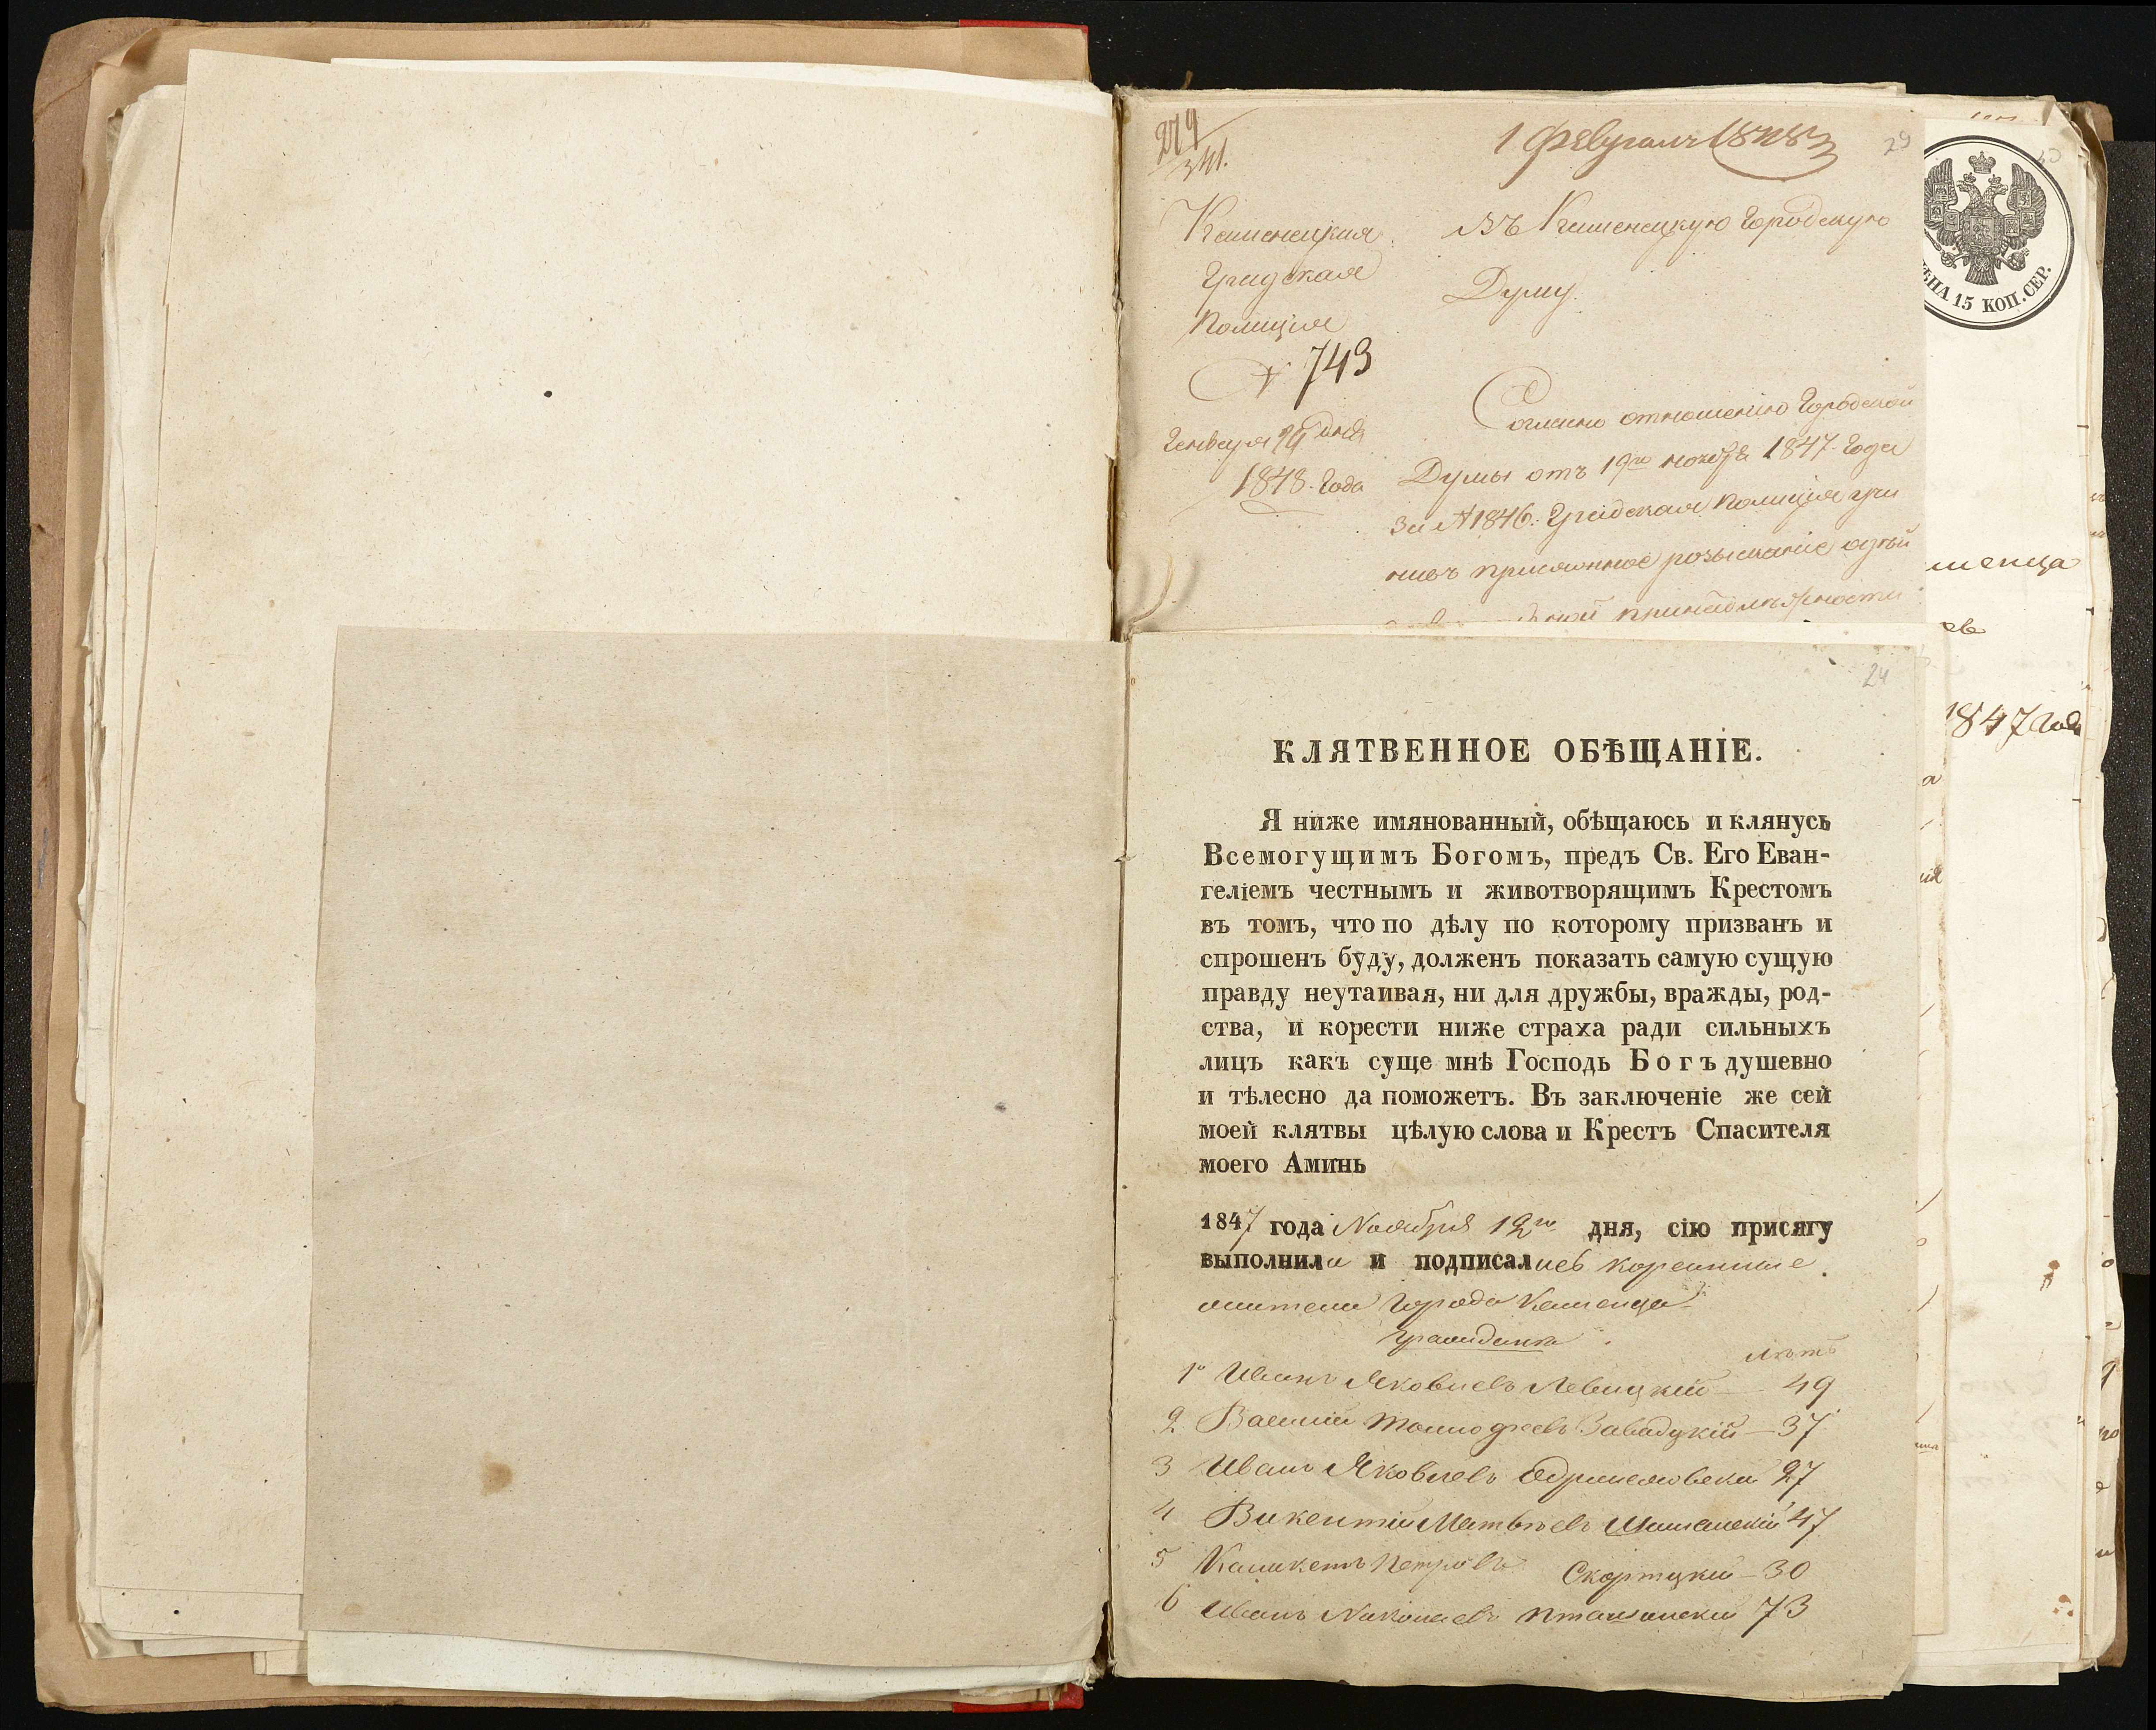 279
341.
1 Февраля 1848
29
Каменецкая
Градская
Полиція
№ 743
Генваря дня
1848. Года
Въ Каменецкую Городскую
Думу.
Согласно отношенію Городской
Думы отъ 19го ноября 1847. Года
за № 1846. Градская Полиція
присяжное розысканіе
принадлежности
ЦѢНА 15 КОП. СЕР.
1847 Года
24
КЛЯТВЕННОЕ ОБѢЩАНІЕ.
Я ниже имянованный, обѣщаюсь и клянусь
Всемогущимъ Богомъ, предъ Св. Его Еван-
геліемъ честнымъ и животворящимъ Крестомъ
въ томъ, что по дѣлу по которому призванъ и
спрошенъ буду, долженъ показать самую сущую
правду неутаивая, ни для дружбы, вражды, род-
ства, и корести ниже страха ради сильныхъ
лицъ какъ суще мнѣ Господь Богъ душевно
и тѣлесно да поможетъ. Въ заключеніе же сей
моей клятвы цѣлую слова и Крестъ Спасителя
моего Аминь
1847 года Ноября 12го дня, сію присягу
выполнили и подписались коренные
жители Города Каменца
граждане
лѣтъ
1о Иванъ Яковлевъ Левицкій 49
2. Василій Тимофеевъ Завадзкій — 37
3 Иванъ Яковлевъ 27
4 Викентій Матвѣевъ 47
5 Каликстъ Петровъ 30
6 Иванъ Николаевъ 73